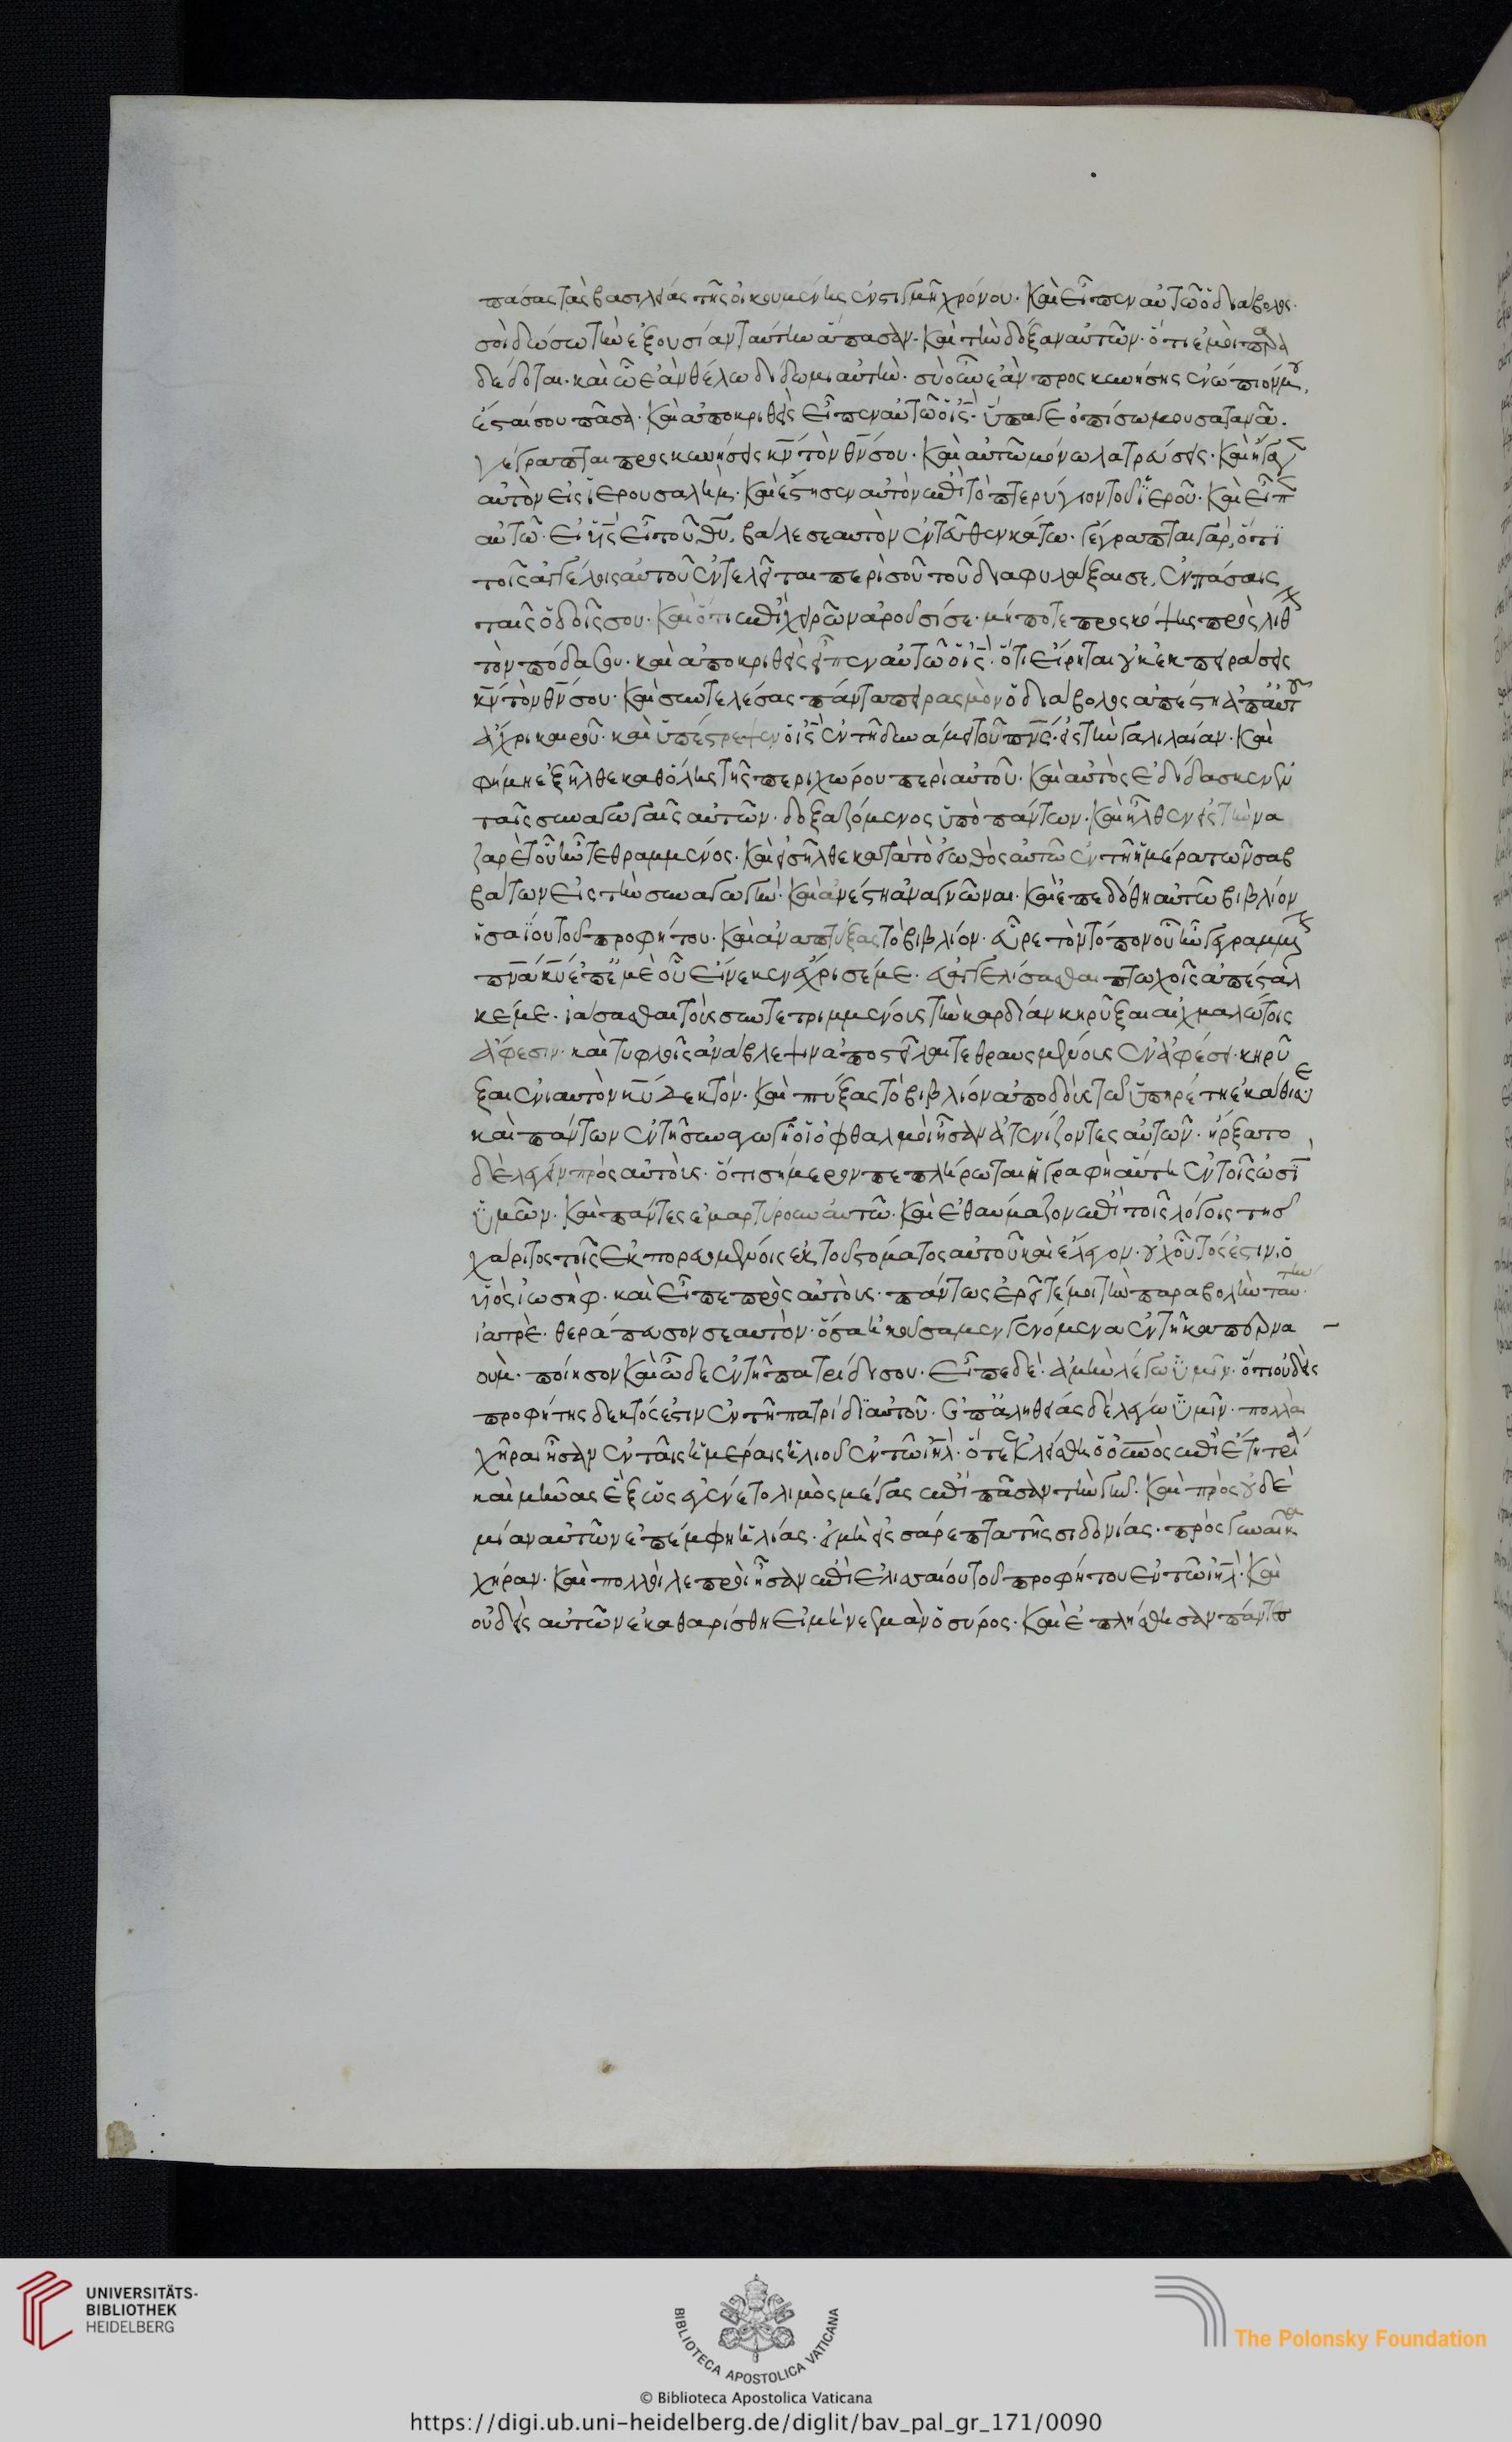 πάσας τὰς βασιλείας τῆς οἰκουμένης ἐν στιγμῆ χρόνου· Καὶ εἶπεν αὐτῶ ὁ διάβολος·
σοὶ δώσω τὴν ἐξουσίαν ταύτην ἅπασαν· καὶ τὴν δόξαν αὐτῶν· ὅτι ἐμοὶ παρα
δέδοται· καὶ ὧ ἐὰν θέλω δίδωμι αὐτήν· σὺ οὖν ἐὰν προσκυνήσης ἐνώπιόν μου,
ἔσται σου πᾶσα· Καὶ ἀποκριθεὶς εἶπεν αὐτῶ ὁ ις̅· ὕπαγε ὀπίσω μου σατανᾶ·
γέγραπται προσκυνήσεις κν̅ τὸν θν̅ σου· Καὶ αὐτῶ μόνω λατρεύσεις· Καὶ ἤγαγ
αὐτὸν εἰς ἱερουσαλήμ· Καὶ ἔστησεν αὐτὸν ἐπὶ τὸ πτερύγιον τοῦ ἱεροῦ· Καὶ εἶπ
αὐτῶ· Εἰ υς̅ εἶ τοῦ θυ̅, βάλε σεαυτὸν ἐντεῦθεν κάτω· γέγραπται γάρ, ὅτι
τοῖς ἀγγέλοις αὐτοῦ ἐντελεῖται περὶ σοῦ τοῦ διαφυλάξαι σε, ἐν πάσαις
ταῖς ὁδοῖς σου· Καὶ ὅτι ἐπὶ χειρῶν ἀροῦσί σε· μήποτε προσκόψης πρὸς λίθ
τὸν πόδα σου· καὶ ἀποκριθεὶς εἶπεν αὐτῶ ὁ ις̅· ὅτι εἴρηται οὐκ ἐκπειράσεις
κν̅ τὸν θν̅ σου· Καὶ συντελέσας πάντα πειρασμὸν ὁ διάβολος ἀπέστη ἀπ' αὐτοῦ
ἄχρι καιροῦ· καὶ ὑπέστρεψεν ὁ ις̅ ἐν τῆ δυνάμει τοῦ πνς̅· εἰς τὴν γαλιλαίαν· Καὶ
φήμη ἐξῆλθε καθ' ὅλης τῆς περιχώρου περὶ αὐτοῦ· Καὶ αὐτὸς ἐδίδασκεν ἐν
ταῖς συναγωγαῖς αὐτῶν· δοξαζόμενος ὑπὸ πάντων· Καὶ ἦλθεν εἰς τὴν να
ζαρὲτ οὗ ἦν τεθραμμένος· Καὶ εἰσῆλθε κατὰ τὸ εἰωθὸς αὐτῶ ἐν τῆ ἡμέρα τῶν σαβ
βάτων εἰς τὴν συναγωγήν· Καὶ ἀνέστη ἀναγνῶναι· Καὶ ἐπεδόθη αὐτῶ βιβλίον
ἡσαΐου τοῦ προφήτου· Καὶ ἀναπτύξας τὸ βιβλίον· εὗρε τὸν τόπον οὗ ἦν γεγραμμέν
πνα̅ κυ̅ ἐπ' ἐμὲ οὗ εἵνεκεν ἔχρισέ με· εὐαγγελίσασθαι πτωχοῖς ἀπέσταλ
κέ με· ἰάσασθαι τοὺς συντετριμμένους τὴν καρδίαν κηρῦξαι αἰχμαλώτοις
ἄφεσιν· καὶ τυφλοῖς ἀνάβλεψιν ἀποστεῖλαι τεθραυσμένους ἐν ἀφέσει· κηρῦ
ξαι ἐνιαυτὸν κυ̅ δεκτόν· Καὶ πτύξας τὸ βιβλίον ἀποδοὺς τῶ ὑπηρέτη ἐκάθισεν
καὶ πάντων ἐν τῆ συναγωγῆ οἱ ὀφθαλμοὶ ἦσαν ἀτενίζοντες αὐτῶ· ἤρξατο
δὲ λέγειν πρὸς αὐτούς· ὅτι σήμερον πεπλήρωται ἡ γραφὴ αὕτη ἐν τοῖς ὠσὶ
ὑμῶν· Καὶ πάντες ἐμαρτύρουν αὐτῶ· Καὶ ἐθαύμαζον ἐπὶ τοῖς λόγοις τῆς
χάριτος τοῖς ἐκπορευομένοις ἐκ τοῦ στόματος αὐτοῦ καὶ ἔλεγον· οὐχ οὗτός ἐστιν ὁ
υἱὸς ἰωσήφ· καὶ εἶπε πρὸς αὐτούς· πάντως ἐρεῖτέ μοι τὴν παραβολὴν ταύτην·
ἰατρὲ· θεράπευσον σεαυτόν· ὅσα ἠκούσαμεν γενόμενα ἐν τῆ καπερνα
ούμ· ποίησον καὶ ὧδε ἐν τῆ πατρίδι σου· Εἶπε δέ· ἀμὴν λέγω ὑμῖν· ὅτι οὐδεὶς
προφήτης δεκτός ἐστιν ἐν τῆ πατρίδι αὐτοῦ· ἐπ' ἀληθείας δὲ λέγω ὑμῖν· πολλαὶ
χῆραι ἦσαν ἐν ταῖς ἡμέραις ἠλιοῦ ἐν τῶ ιηλ̅· ὅτε ἐκλείσθη ὁ οὐνὸς ἐπὶ ἔτη τρία
καὶ μῆνας ἓξ ὡς ἐγένετο λιμὸς μέγας ἐπὶ πᾶσαν τὴν γῆν· Καὶ πρὸς οὐδε
μίαν αὐτῶν ἐπέμφθη ἠλίας· εἰ μὴ εἰς σάρεπτα τῆς σιδονίας· πρὸς γυναῖκα
χήραν· Καὶ πολλοὶ λεπροὶ ἦσαν ἐπὶ ἐλισσαίου τοῦ προφήτου ἐν τῶ ιηλ̅· Καὶ
οὐδεὶς αὐτῶν ἐκαθαρίσθη εἰ μὴ νεεμὰν ὁ σύρος· Καὶ ἐπλήσθησαν πάντες
UNIVERSITÄTS-
BIBLIOTHEK
HEIDELBERG
BIBLIOTECA APOSTOLICA VATICANA
The Polonsky Foundation
© Biblioteca Apostolica Vaticana
https://digi.ub.uni-heidelberg.de/diglit/bav_pal_gr_171/0090